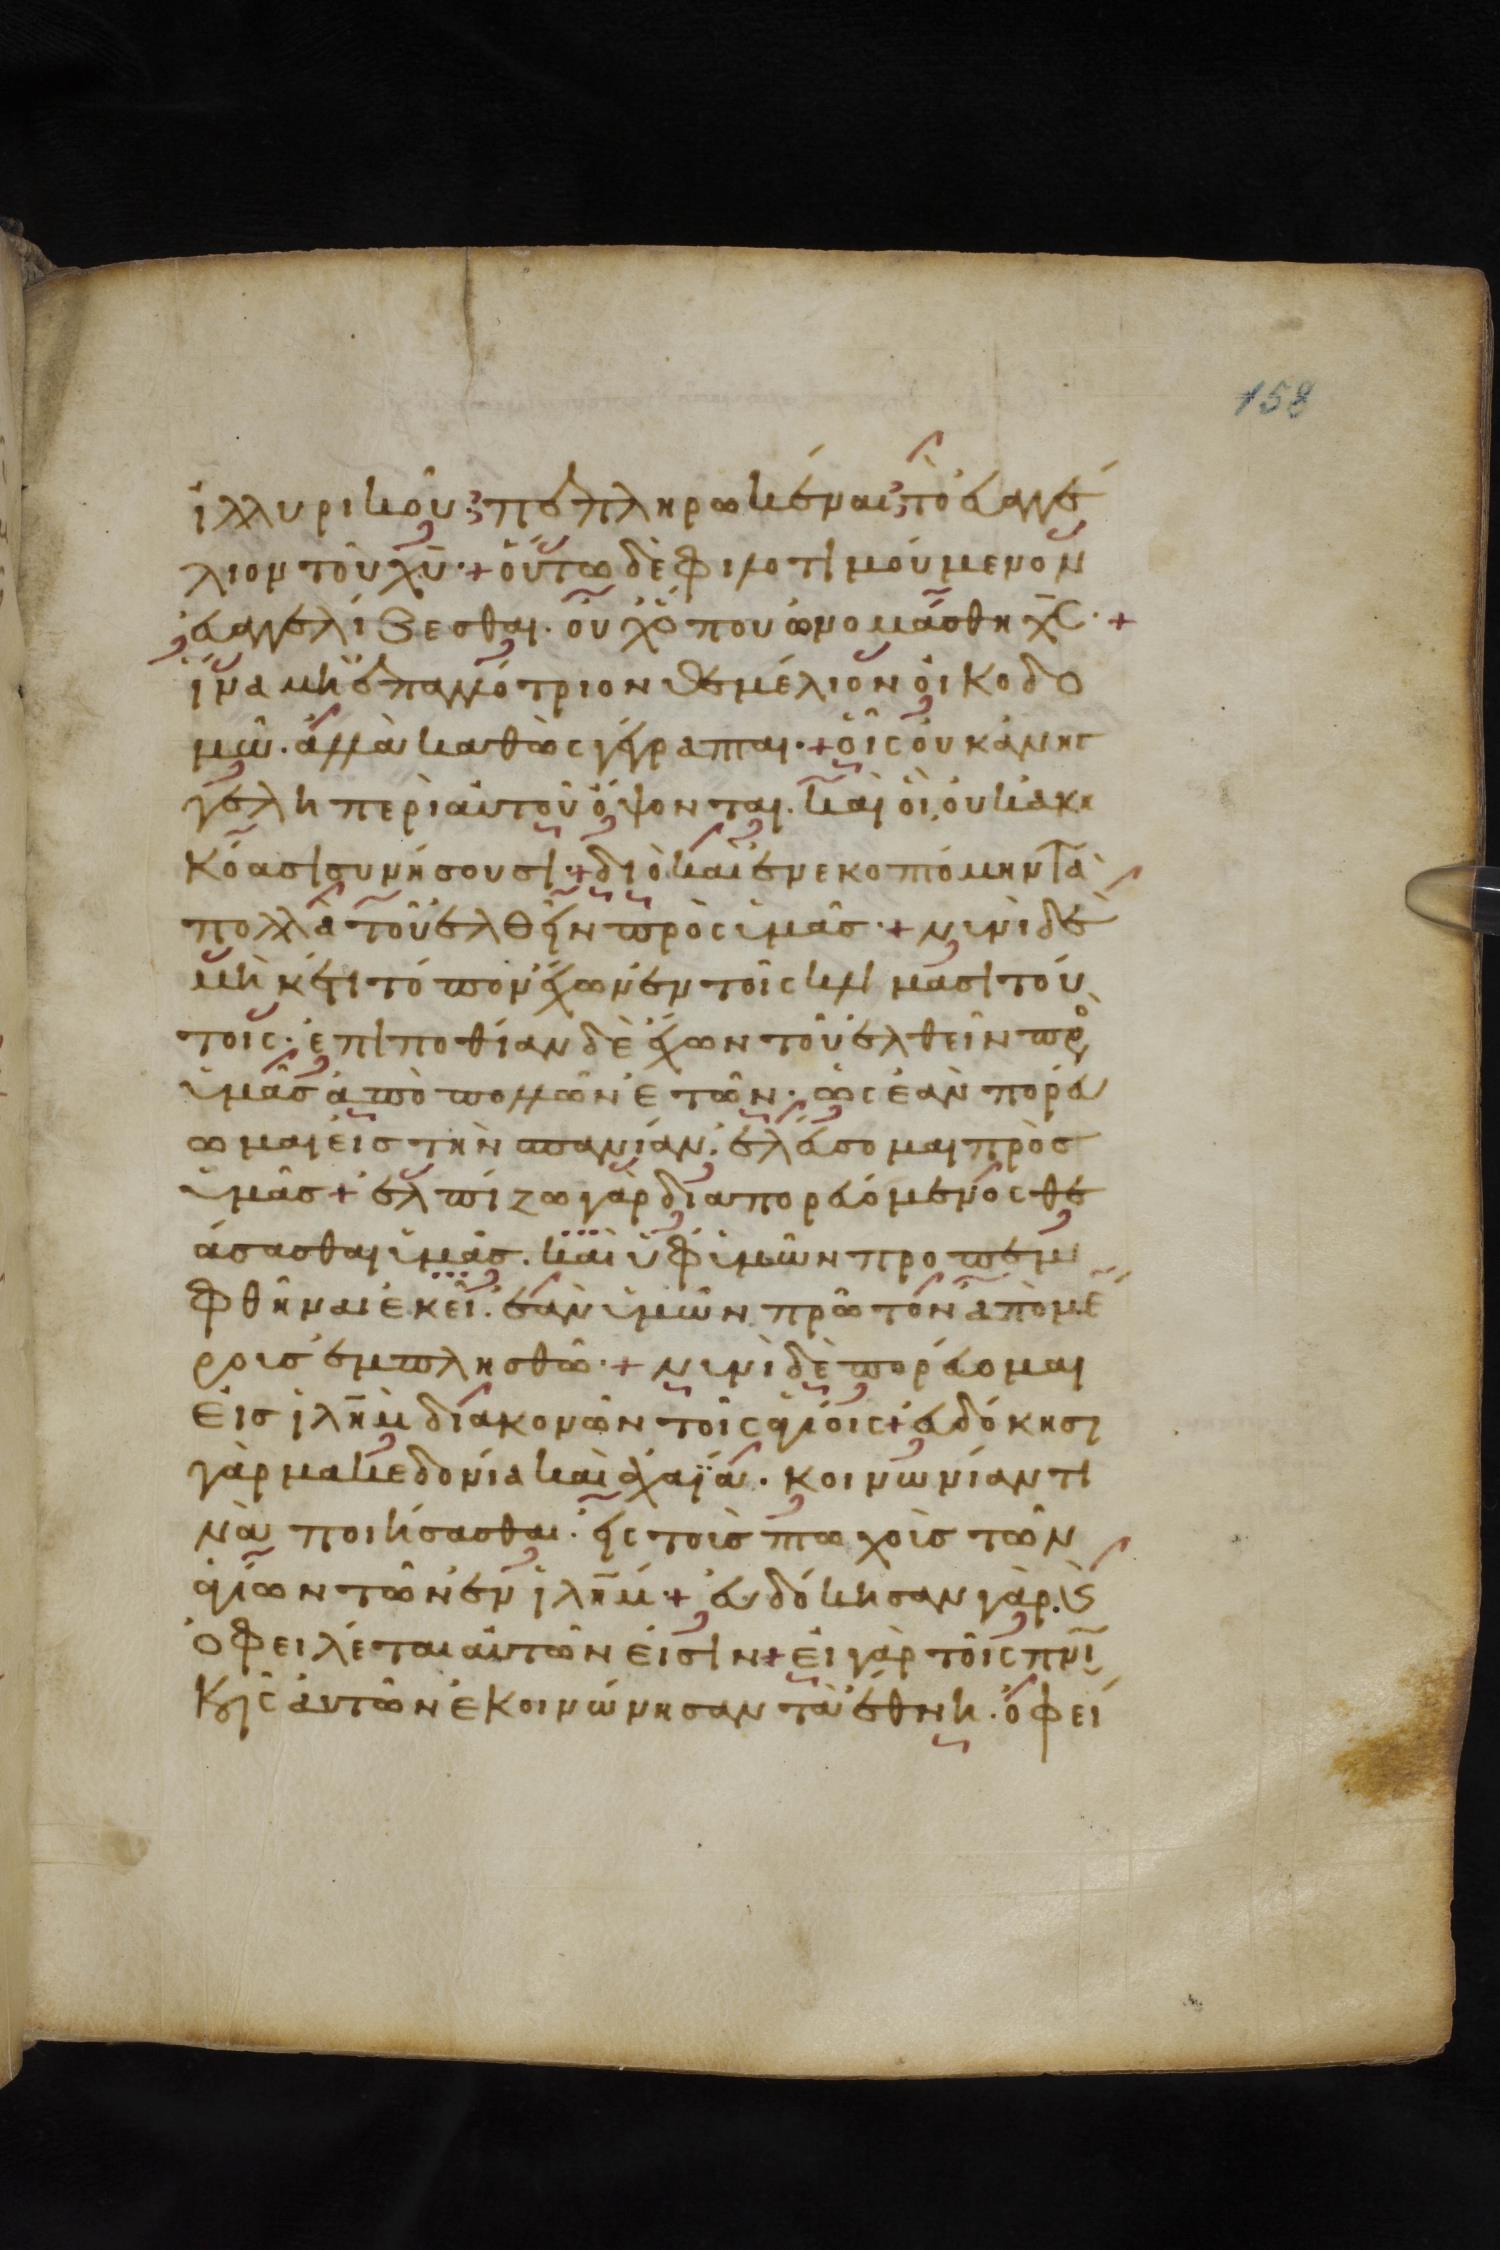 158
ἰλλυρικοῦ· πεπληρωκέναι τὸ εὐαγγέ
λιον τοῦ χῡ·+ οὕτω δὲ φιλοτιμούμενον
εὐαγγελίζεσθαι. οὐχ ὅπου ὠνομάσθη χ̄ς·+
ἵνα μὴ ἐπ ἀλλότριον θεμέλιον οἰκοδο
μῶ. ἀλλὰ καθὼς γέγραπται·+ οἷς οὐκ ἀνηγ
γέλη περὶ αὐτοῦ ὄψονται. καὶ οἱ οὐκ ἀκη
κόασι συνήσουσι·+ διὸ καὶ ἐνεκοπτόμην τὰ
πολλὰ τοῦ ἐλθεῖν πρὸς ὑμᾶς·+ νυνὶ δὲ
μὴκέτι τόπον ἔχων ἐν τοῖς κλίμασι τού
τοις· ἐπιποθίαν δὲ ἔχων τοῦ ἐλθεῖν πρὸ
ὑμᾶς ἀπὸ πολλῶν ἐτῶν· ὡς ἐὰν πορεύ
ωμαι εἰς τὴν σπανίαν. ἐλεύσομαι πρὸς
ὑμᾶς+ ἐλπίζω γὰρ διαπορευόμενος θε
άσασθαι ὑμᾶς. καὶ ὑφ ὑμῶν προπεμ
φθῆναι ἐκεῖ. ἐὰν ὑμῶν πρῶτον ἀπὸ μέ
ρους ἐμπλησθῶ·+ νυνὶ δὲ πορεύομαι
εἰς ἰλη̄μ διακονῶν τοῖς ἁγίοις+ εὐδόκησ
γὰρ μακεδονία καὶ ἀχαϊα. κοινωνίαν τι
νὰ ποιήσασθαι· εἰς τοὺς πτωχοὺς τῶν
ἁγίων τῶν ἐν ἰλη̄μ·+ εὐδόκησαν γὰρ. ϗ
ὀφειλέται αὐτῶν εἰσὶν+ εἰ γὰρ τοῖς πν̄ι
κοῖς αὐτῶν ἐκοινώνησαν τὰ ἔθνη. ὀφεί